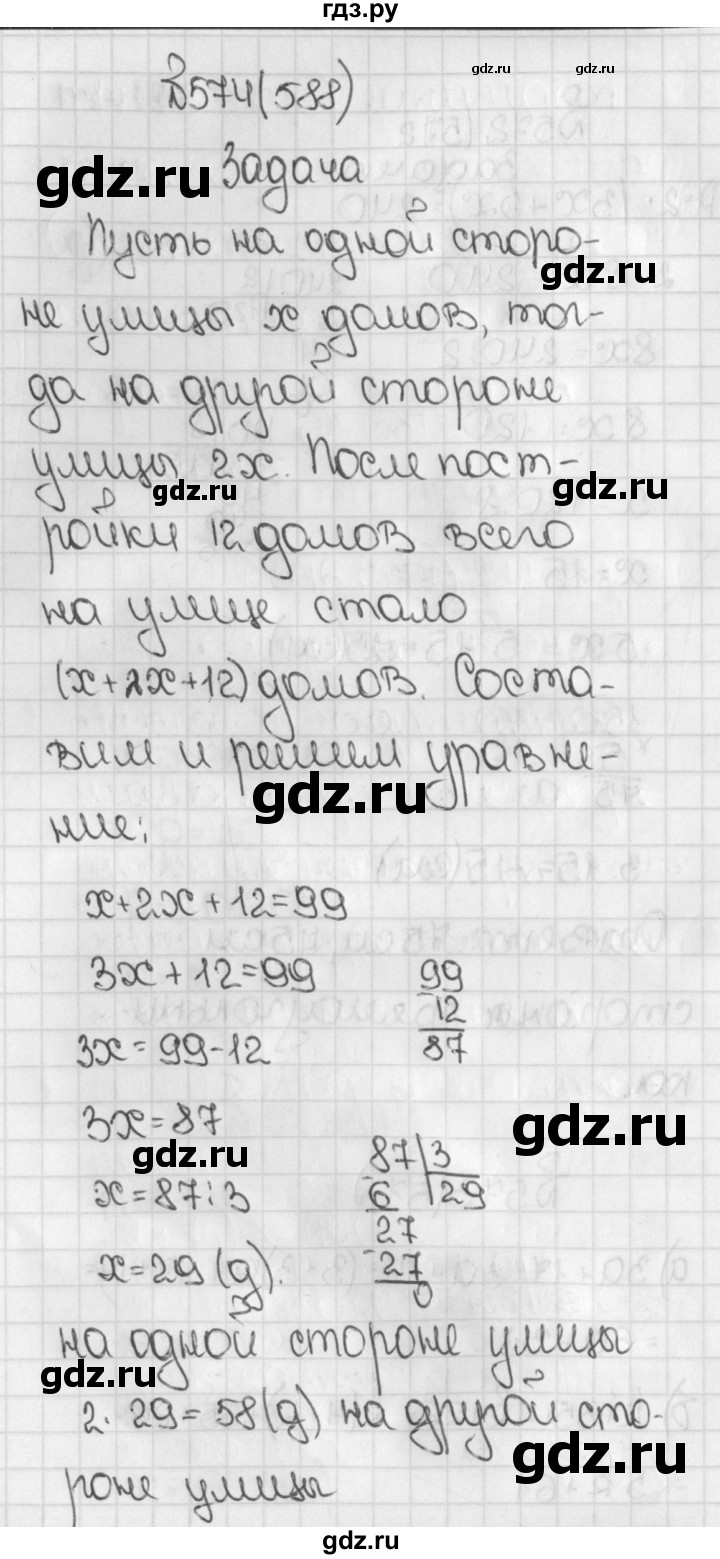 гдз.ру
gdz.ru
gdz.ru
№574(588)
gdz.ru
Задача
Пусть на одной сторо-
gdz.ru
не улицы x домов, тог-
да на другой стороне
gdz.ru
улицы 2x. После пост-
gdz.ru
ройки 12 домов всего
на улице стало
(x+2x+12) домов. Соста-
вим и решим уравне-
gdz.ru
ние:
x+2x+12=99
3x+12=99
3x=99-12
99
12
87
3x=87
gdz.ru
gdz.ru
x=87:3
x=29 (д).
87 3
6 29
27
27
0
на одной стороне улицы
gdz.ru
gdz.ru
2·29=58(д) на другой сто-
gdz.ru
роне улицы
gdz.ru